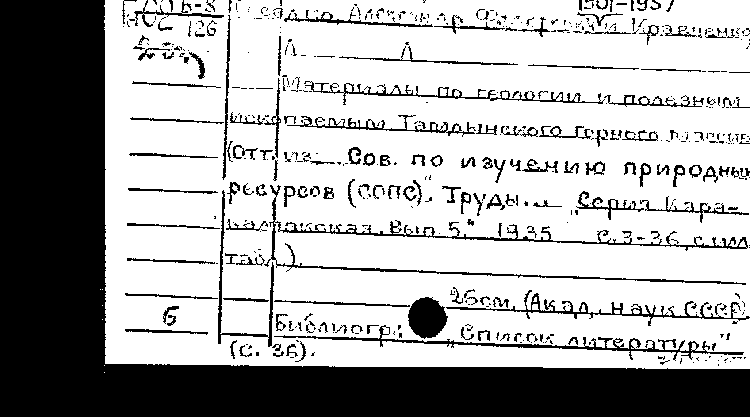 1901-1957
126
Александр Федорович и Кравченко,
Материалы по геологии и полезным
ископаемым Тамдынского горного массив
(Отт. из: Сов. по изучению природных
ресурсов (СОПС). Труды... „Серия Кара-
калпакская. Вып. 5." 1935 с. 3-36, с илл.
табл.).
26см. (Акад. наук СССР)
б
Библиогр.: „Список литературы"
(с. 36).